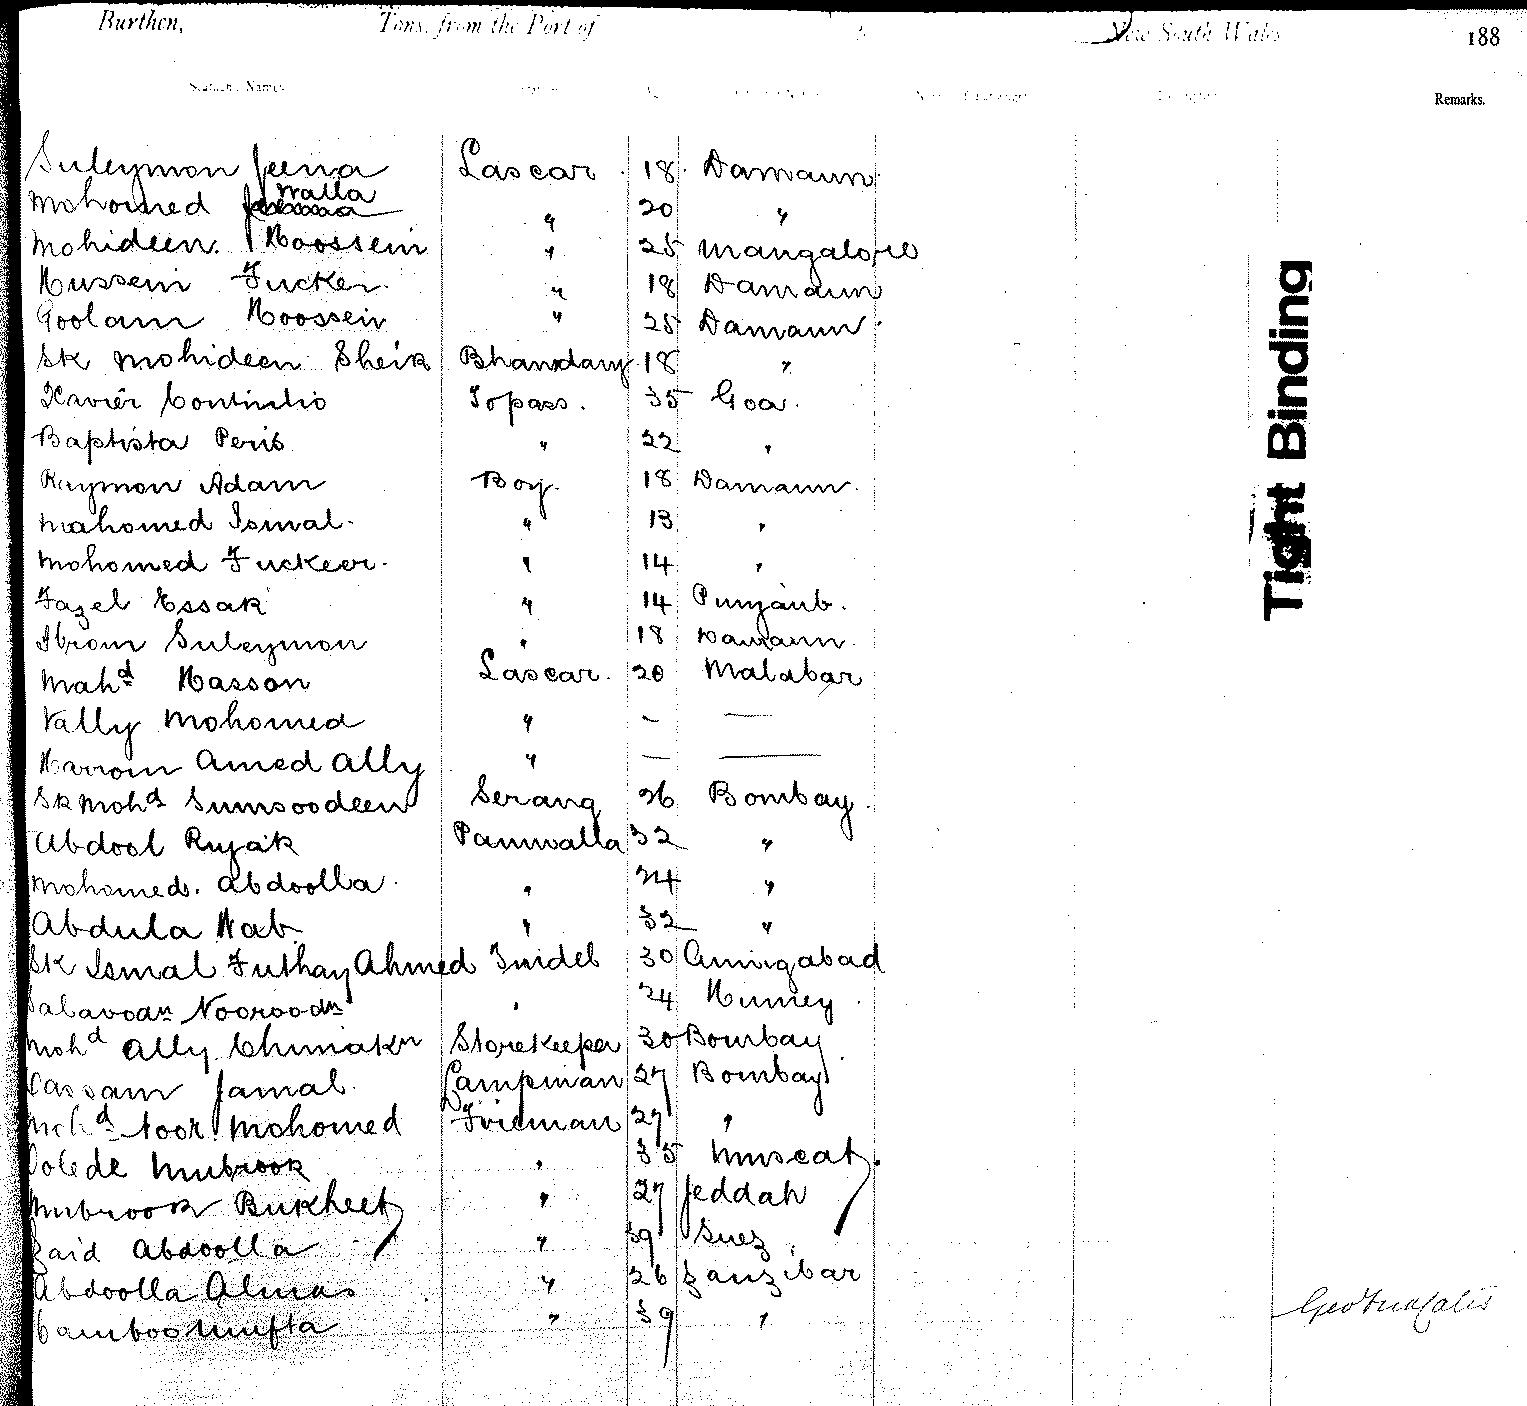 Burthen, Tons, from the Port of New South Wales 188
Seamen's Names Remarks.
Suleymon Jeena Lascar 18 Damaun
Mohomed Walla " 20 "
Mohideen Hoossein " 25 Mangalore
Hussein Fucker " 18 Damaun
Goolam Hoossein " 25 Damaun
Sk Mohideen Sheik Bhandary 18 "
Xavier Contintio Topass. 35 Goa.
Baptista Peris " 22 "
Raymon Adam Boy. 18 Damaun.
Mahomed Ismal. " 13 "
Mohomed Fuckeer. " 14 "
Fazel Essak " 14 Punjaub.
Ibrom Suleymon " 18 Damaun.
Mahd Hasson Lascar. 20 Malabar
Vally Mohomed " — —
Harrom Amed Ally " — —
Sk Mohd Sumsoodeen Serang 26 Bombay.
Abdool Rujak Panwalla 32 "
Mohomed. Abdoolla. " 24 "
Abdula Wab " 32 "
Sk Ismal Futhay Ahmed Tindel 30
Nooroodn " 24
Mohd Ally Storekeeper 30 Bombay
Cassam Jamal. Lampman 27 Bombay
Mohd Noor Mohomed Fireman 27 "
Mubrook " 35 Muscat.
Mubrook Bukheet " 27 Jeddah
Zaid Abdoolla " 39 Suez
Abdoolla Almas " 26 Zanzibar
Bamboo Mufta " 39 "
Tight Binding